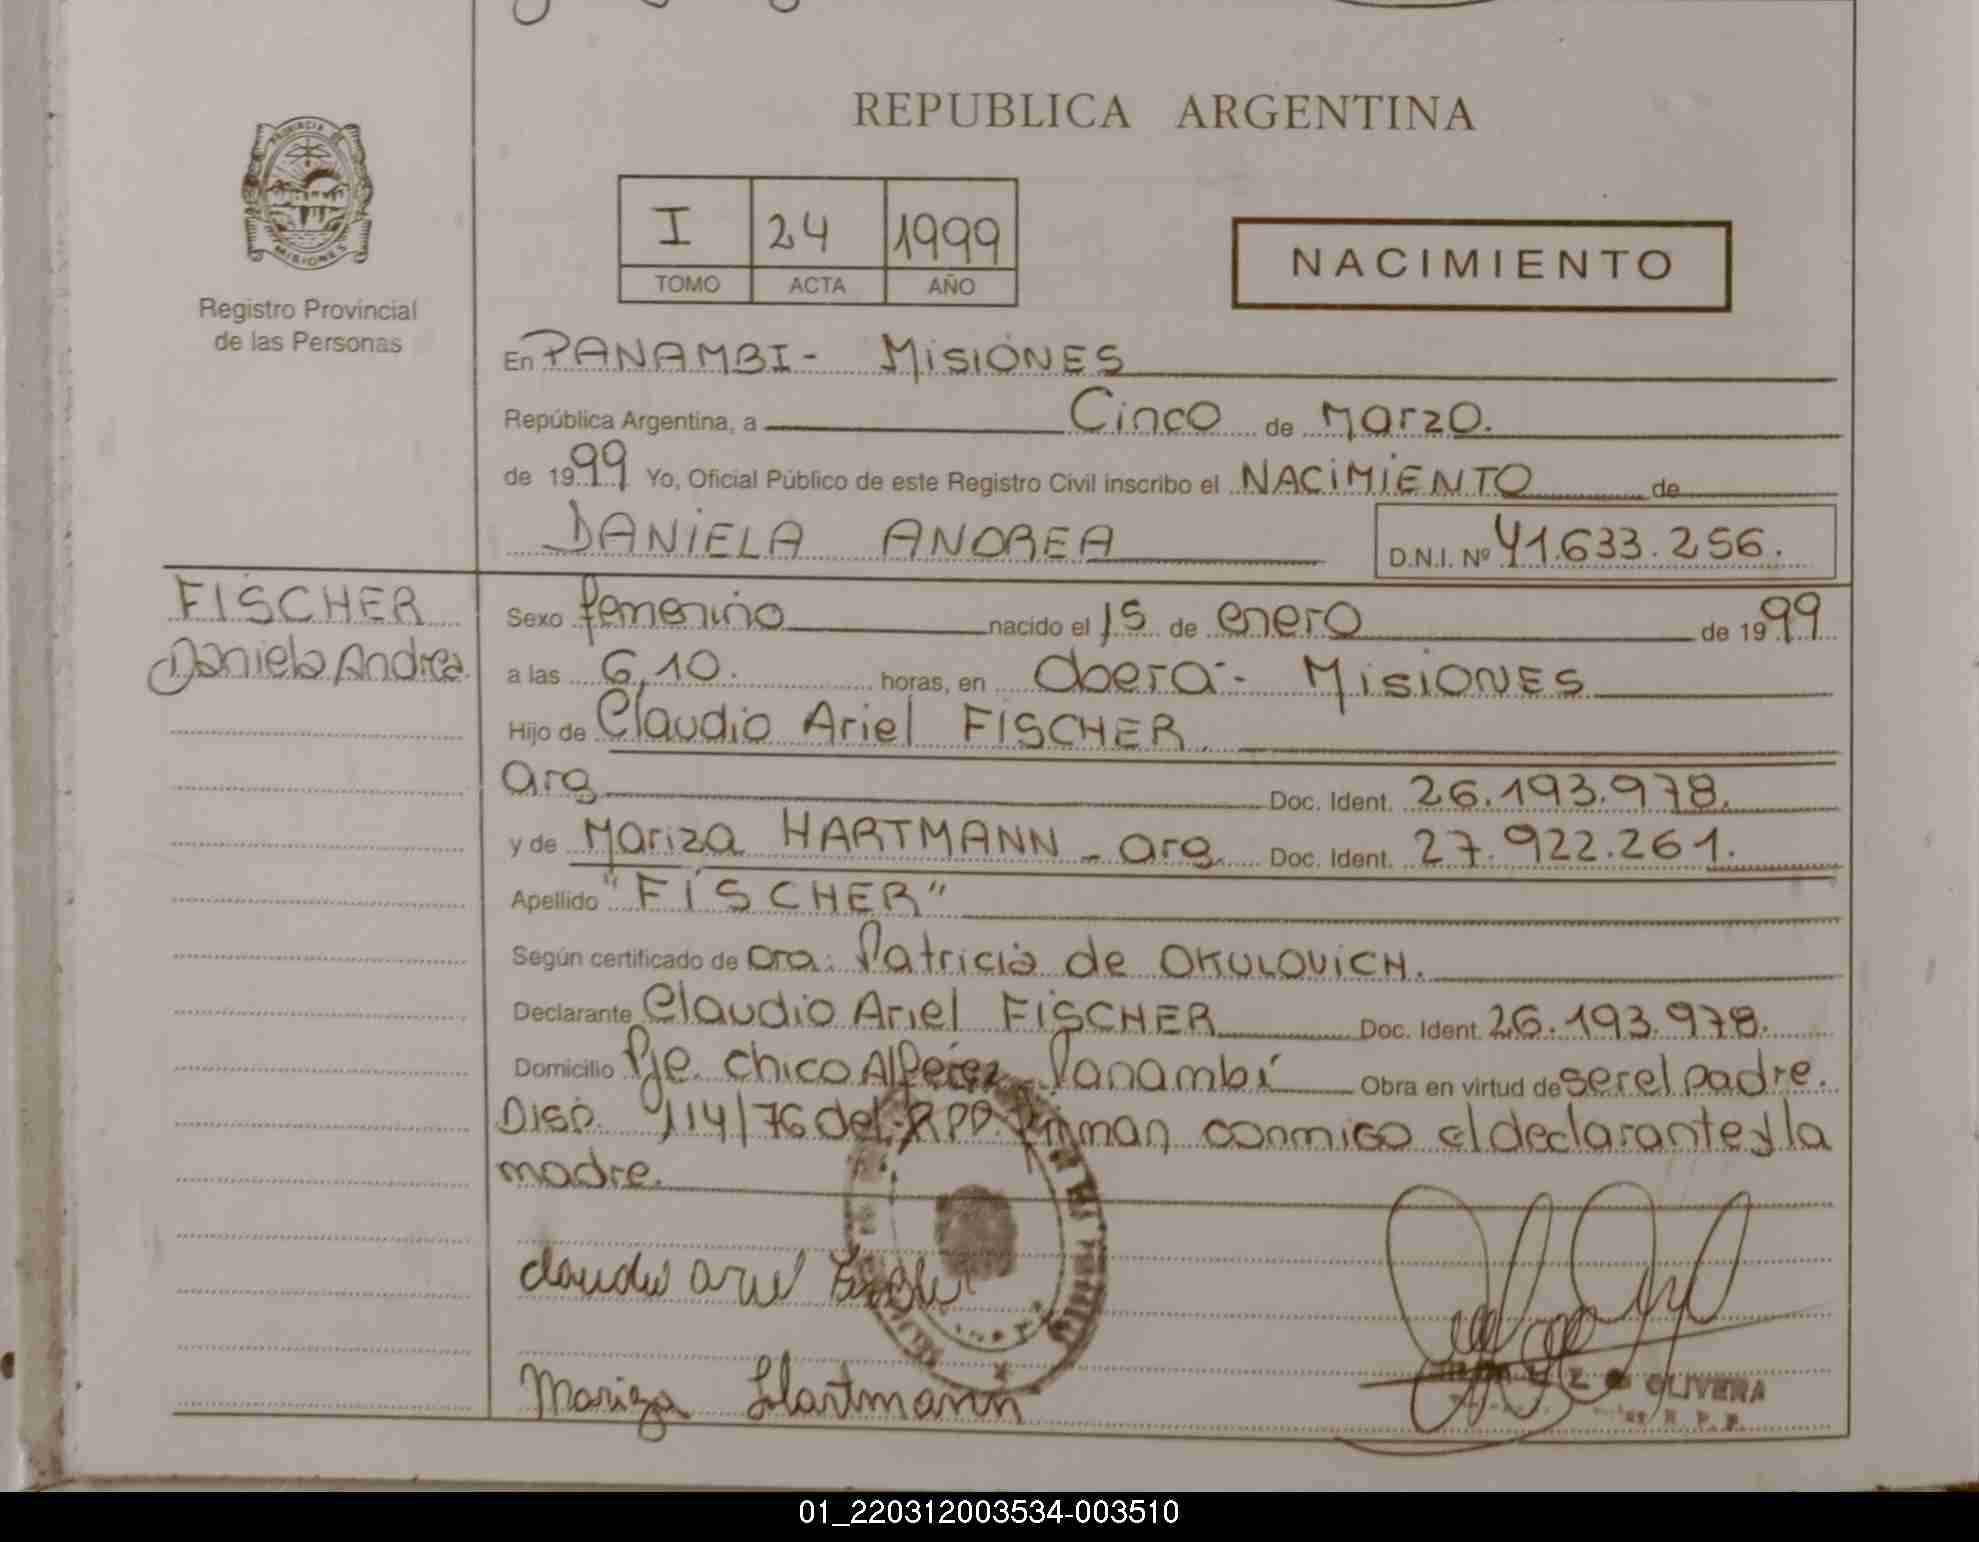 REPUBLICA ARGENTINA
PROVINCIA DE
MISIONES
Registro Provincial
de las Personas
I 24 1999
TOMO ACTA AÑO
NACIMIENTO
En PANAMBI - MISIONES
República Argentina, a Cinco de Marzo.
de 1999 Yo, Oficial Público de este Registro Civil inscribo el NACIMIENTO de
DANIELA ANDREA D.N.I. Nº 41.633.256.
FISCHER
Daniela Andrea
Sexo femenino nacido el 15 de enero de 1999
a las 6,10. horas, en Oberá - MISIONES
Hijo de Claudio Ariel FISCHER
arg Doc. Ident. 26.193.978.
y de Mariza HARTMANN - arg. Doc. Ident. 27.922.261.
Apellido "FISCHER"
Según certificado de Dra: Patricia de OKULOVICH.
Declarante Claudio Ariel FISCHER Doc. Ident. 26.193.978.
Domicilio Pje. Chico Alferez Panambí Obra en virtud de ser el padre.
Disp. 114/76 del RPP Firman conmigo el declarante y la
madre.
Claudio Ariel Fischer
Mariza Hartmann
OLIVERA
R. P. P.
01_220312003534-003510